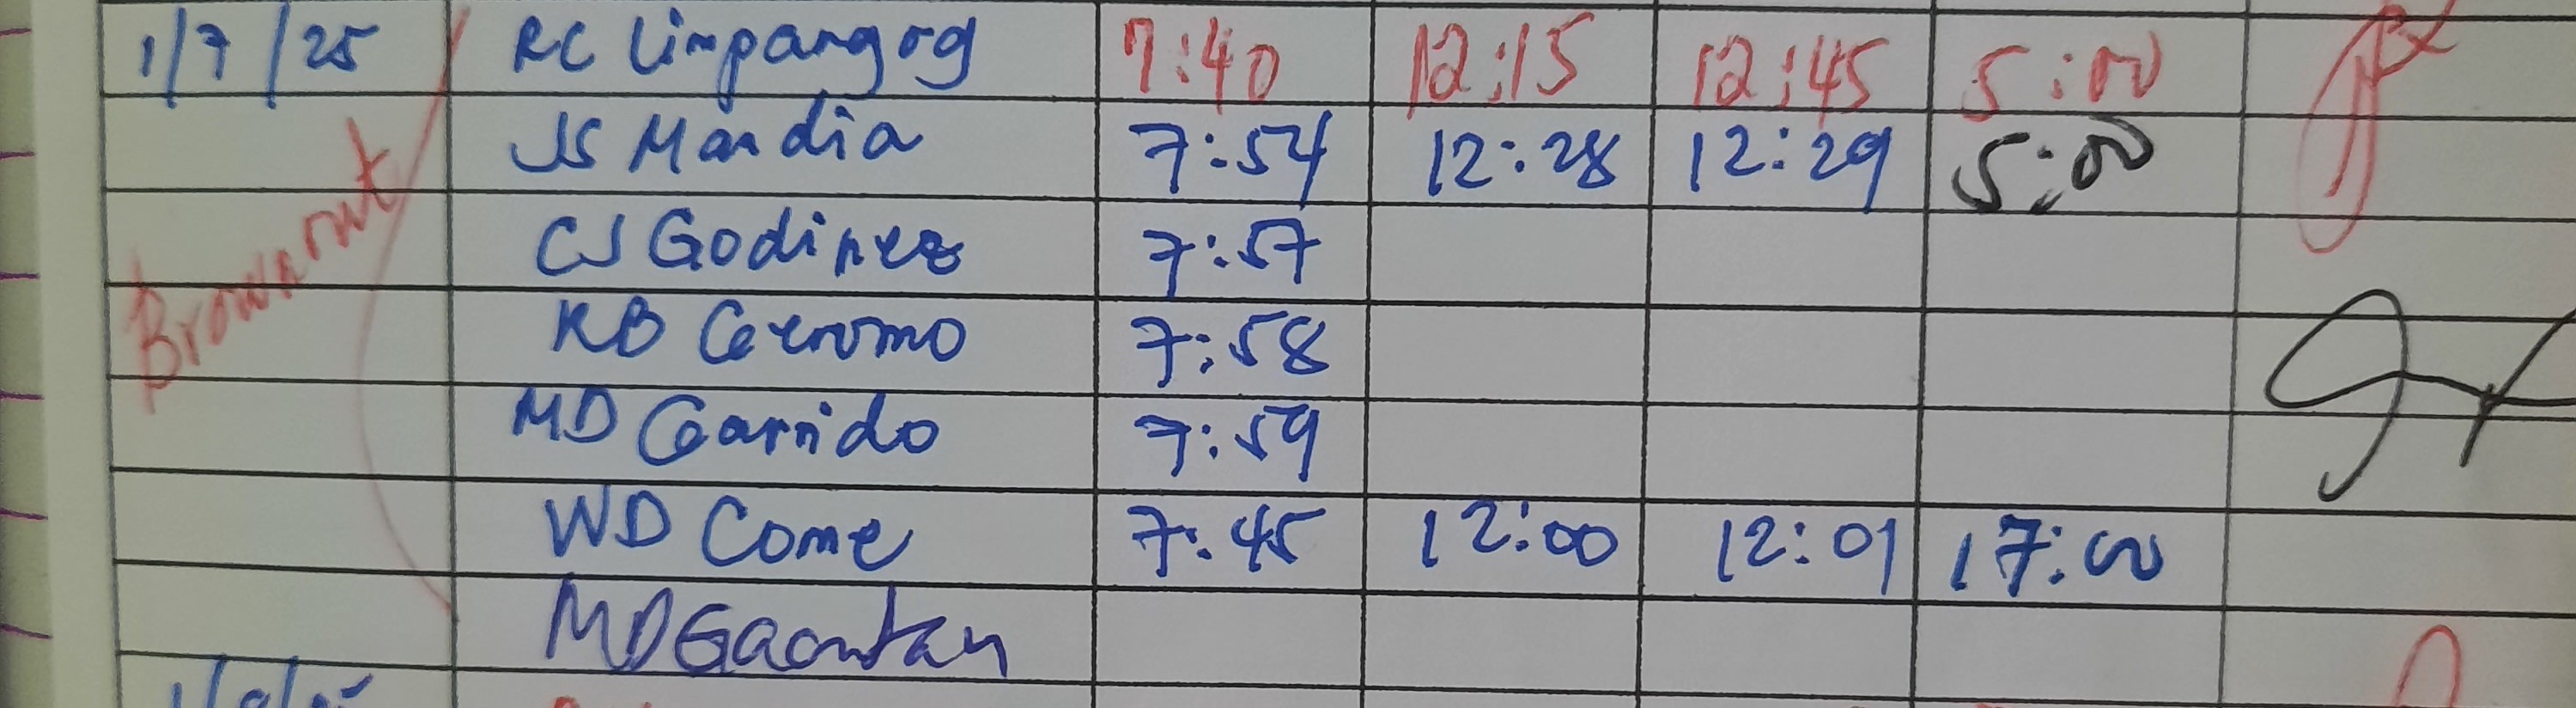 1/7/25 RC Limpangog 7:40 12:15 12:45 5:00
JS Mandia 7:54 12:28 12:29 5:00
CJ Godinez 7:57
KB Geromo 7:58
Brownout
MD Garrido 7:59
WD Come 7:45 12:00 12:01 17:00
MD Gaontan